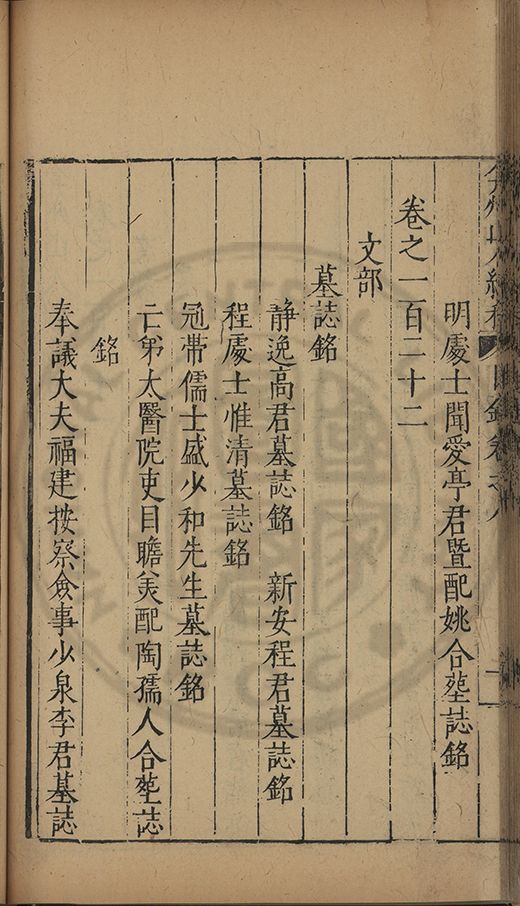 弇州山人續稿 目錄卷之八
明處士聞愛亭君暨配姚合塟誌銘
卷之一百二十二
文部
墓誌銘
靜逸高君墓誌銘 新安程君墓誌銘
程處士惟清墓誌銘
冠帶儒士盛少和先生墓誌銘
亡弟太醫院吏目瞻美配陶孺人合塟誌
銘
奉議大夫福建按察僉事少泉李君墓誌